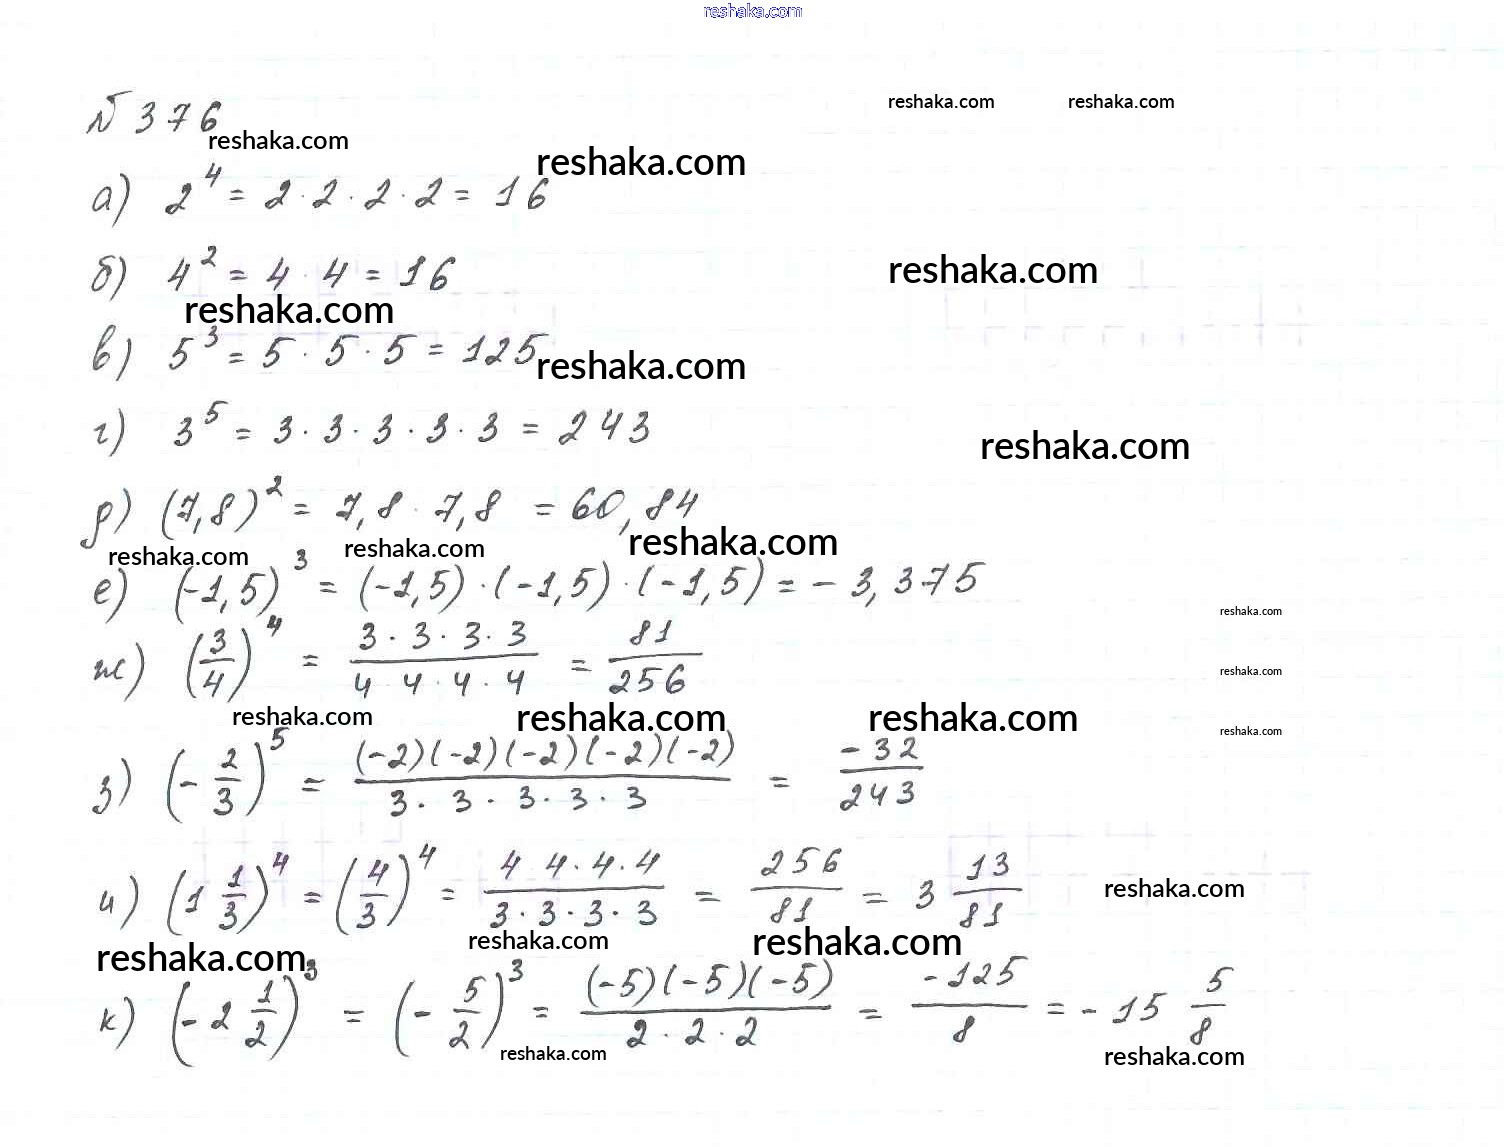 reshaka.com
reshaka.com reshaka.com
№ 376
reshaka.com
reshaka.com
а) 2⁴ = 2 · 2 · 2 · 2 = 16
б) 4² = 4 · 4 = 16
reshaka.com
reshaka.com
в) 5³ = 5 · 5 · 5 = 125
reshaka.com
г) 3⁵ = 3 · 3 · 3 · 3 · 3 = 243
reshaka.com
д) (7,8)² = 7,8 · 7,8 = 60,84
reshaka.com reshaka.com reshaka.com
е) (-1,5)³ = (-1,5) · (-1,5) · (-1,5) = - 3,375
reshaka.com
ж) (3/4)⁴ = (3 · 3 · 3 · 3)/(4 · 4 · 4 · 4) = 81/256
reshaka.com
reshaka.com reshaka.com reshaka.com
reshaka.com
з) (- 2/3)⁵ = ((-2)(-2)(-2)(-2)(-2))/(3 · 3 · 3 · 3 · 3) = -32/243
и) (1 1/3)⁴ = (4/3)⁴ = (4 · 4 · 4 · 4)/(3 · 3 · 3 · 3) = 256/81 = 3 13/81
reshaka.com
reshaka.com reshaka.com reshaka.com
к) (- 2 1/2)³ = (- 5/2)³ = ((-5)(-5)(-5))/(2 · 2 · 2) = -125/8 = - 15 5/8
reshaka.com reshaka.com